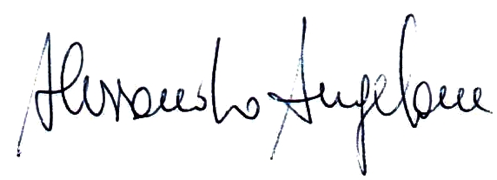 Alessandro Angelone